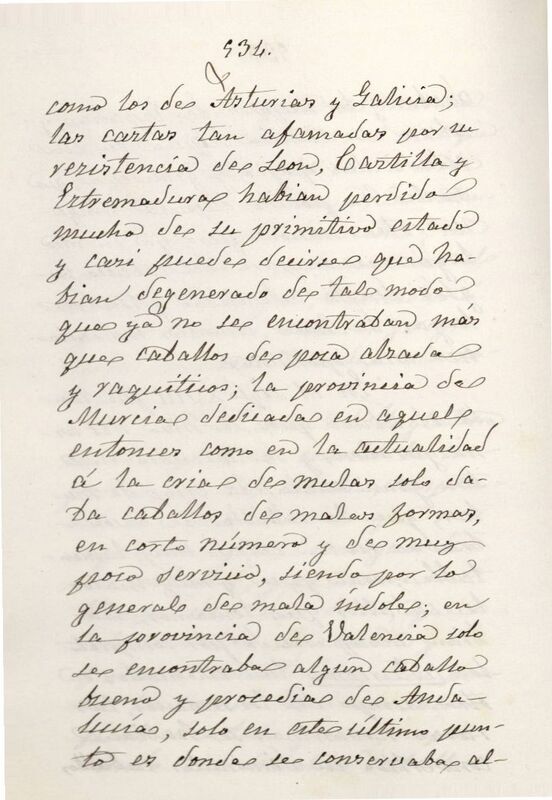 534.
como los de Asturias y Galicia;
las castas tan afamadas por su
resistencia de Leon, Castilla y
Estremadura habian perdido
mucho de su primitivo estado
y casi puede decirse que ha-
bian degenerado de tal modo
que ya no se encontraban más
que caballos de poca alzada
y raquiticos; la provincia de
Murcia dedicada en aquel
entonces como en la actualidad
á la cria de mulas solo da-
ba caballos de malas formas,
en corto número y de muy
poco servicio, siendo por lo
general de mala índole; en
la provincia de Valencia solo
se encontraba algun caballo
bueno y procedia de Anda-
lucía, solo en este último pun-
to es donde se conservaba al-